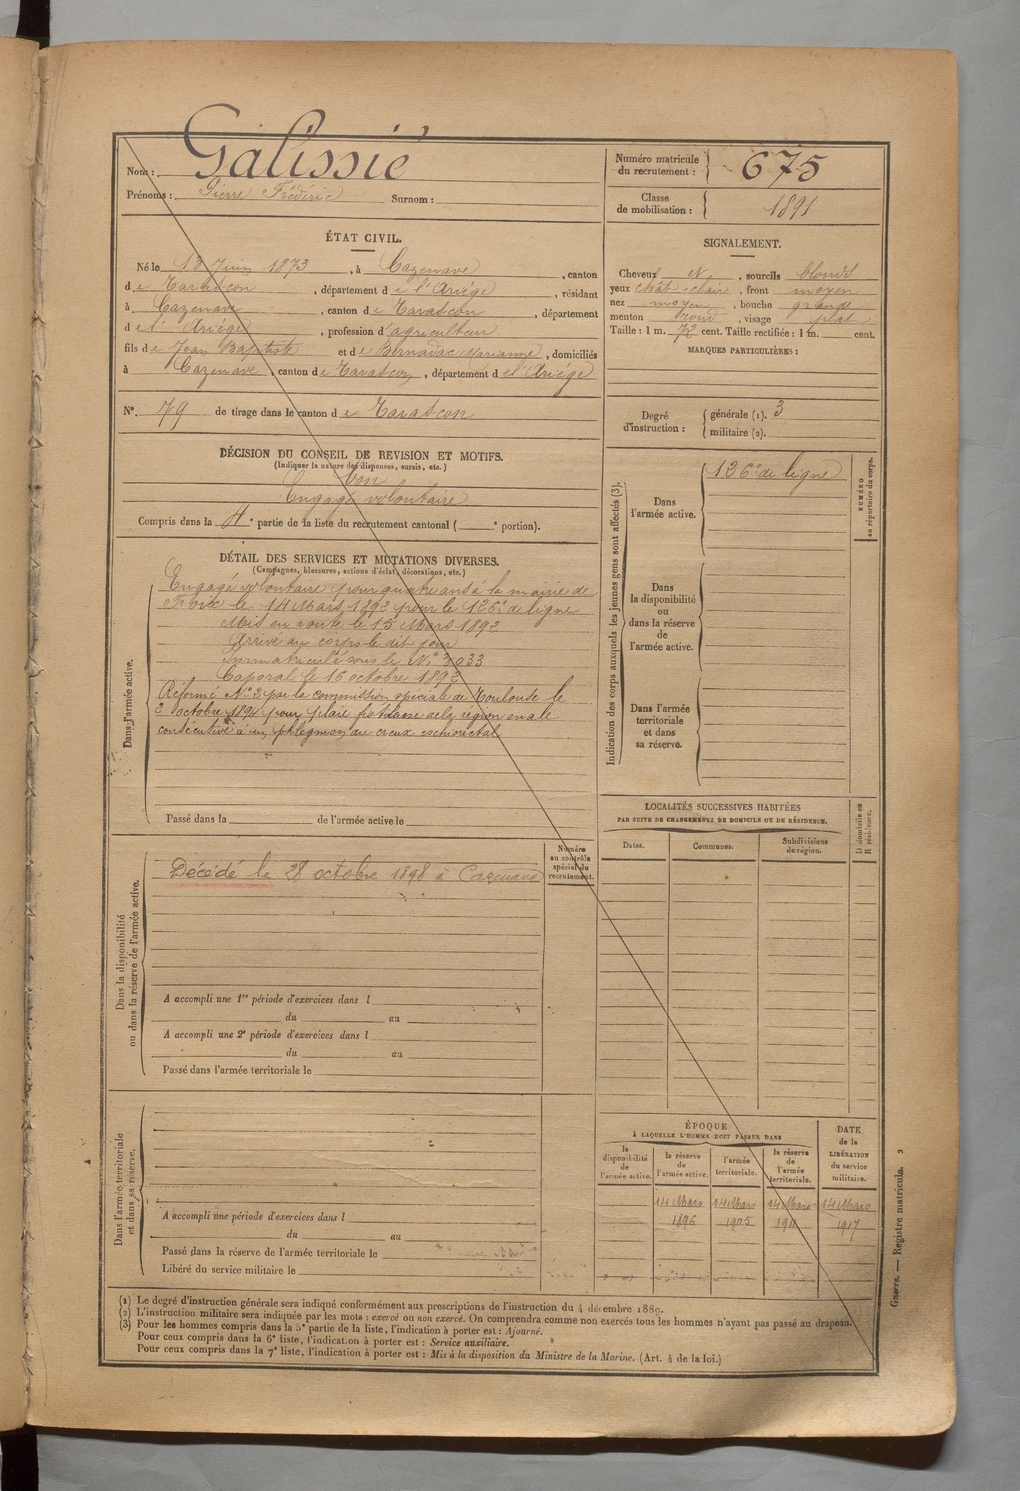 Nom : Galissié
Prénoms : Pierre Frédéric Surnom :
Numéro matricule du recrutement : 675
Classe de mobilisation : 1891
ÉTAT CIVIL.
Né le 13 Juin 1873, à Cazenave, canton
de Tarascon, département de l'Ariége, résidant
à Cazenave, canton de Tarascon, département
de l'Ariége, profession d'agriculteur
fils de Jean Baptiste et de Bernadac Marianne, domiciliés
à Cazenave, canton de Tarascon, département de l'Ariége
N° 79 de tirage dans le canton de Tarascon
SIGNALEMENT.
Cheveux et, sourcils blonds
yeux chât. clair, front moyen
nez moyen, bouche grande
menton rond, visage plat
Taille : 1 m. 72 cent. Taille rectifiée : 1 m. cent.
MARQUES PARTICULIÈRES :
Degré d'instruction : générale (1). 3
militaire (2).
DÉCISION DU CONSEIL DE REVISION ET MOTIFS.
(Indiquer la nature des dispenses, sursis, etc.)
Bon
Engagé volontaire
Compris dans la 4e partie de la liste du recrutement cantonal ( e portion).
DÉTAIL DES SERVICES ET MUTATIONS DIVERSES.
(Campagnes, blessures, actions d'éclat, décorations, etc.)
Dans l'armée active.
Engagé volontaire pour quatre ans à la mairie de
Foix le 14 Mars 1892 pour le 126e de ligne
Mis en route le 15 Mars 1892
Arrivé au corps le dit jour
Immatriculé sous le N° 3033
Caporal le 16 octobre 1892
Réformé N° 2 par la commission spéciale de Toulouse le
2 octobre 1894 pour plaie de la région anale
consécutive à un phlegmon du creux
Passé dans la de l'armée active le
Indication des corps auxquels les jeunes gens sont affectés (3).
Dans l'armée active.
126e de ligne
NUMÉRO au répertoire du corps.
Dans la disponibilité ou dans la réserve de l'armée active.
Dans l'armée territoriale et dans sa réserve.
LOCALITÉS SUCCESSIVES HABITÉES
PAR SUITE DE CHANGEMENTS DE DOMICILE OU DE RÉSIDENCE.
Dates. Communes. Subdivisions de région. D domicile ou R résidence.
Dans la disponibilité ou dans la réserve de l'armée active.
Numéro au contrôle spécial du recrutement.
Décédé le 28 octobre 1898 à Cazenave
A accompli une 1re période d'exercices dans l
du au
A accompli une 2e période d'exercices dans l
du au
Passé dans l'armée territoriale le
Dans l'armée territoriale et dans sa réserve.
A accompli une période d'exercices dans l
du au
Passé dans la réserve de l'armée territoriale le
Libéré du service militaire le
ÉPOQUE
À LAQUELLE L'HOMME DOIT PASSER DANS
la disponibilité de l'armée active. la réserve de l'armée active. l'armée territoriale. la réserve de l'armée territoriale. DATE de la LIBÉRATION du service militaire.
14 Mars 14 Mars 14 Mars 14 Mars
1896 1905 1911 1917
(1) Le degré d'instruction générale sera indiqué conformément aux prescriptions de l'instruction du 4 décembre 1889.
(2) L'instruction militaire sera indiquée par les mots : exercé ou non exercé. On comprendra comme non exercés tous les hommes n'ayant pas passé au drapeau.
(3) Pour les hommes compris dans la 5e partie de la liste, l'indication à porter est : Ajourné.
Pour ceux compris dans la 6e liste, l'indication à porter est : Service auxiliaire.
Pour ceux compris dans la 7e liste, l'indication à porter est : Mis à la disposition du Ministre de la Marine. (Art. 4 de la loi.)
Guerre. — Registre matricule. 2